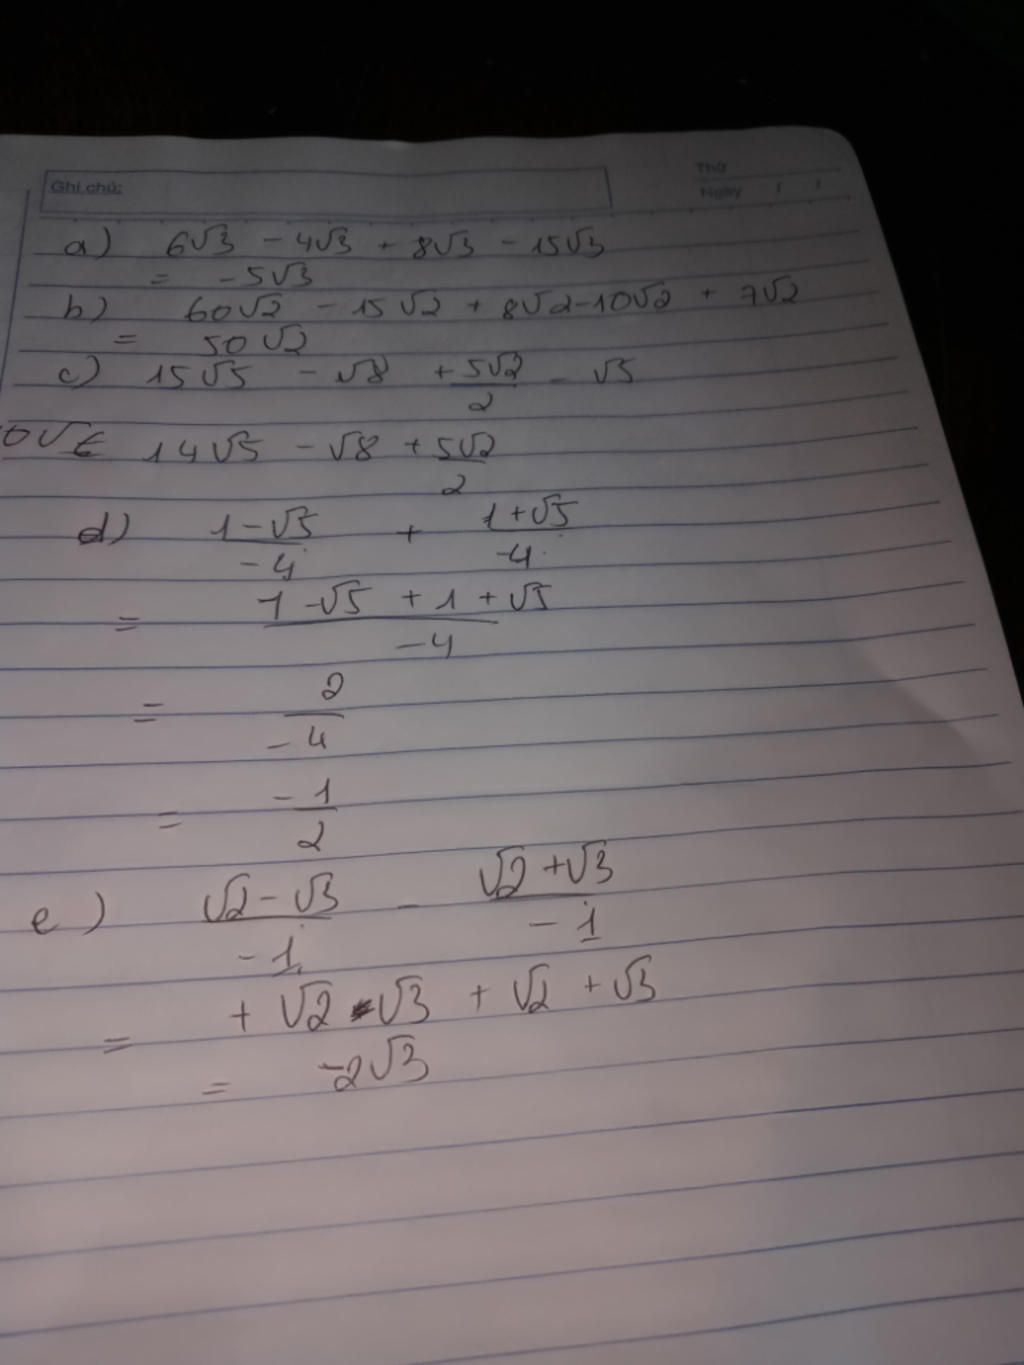 Ghi chú:
Thứ
Ngày / /
a) 6√3 - 4√3 + 8√3 - 15√3
= -5√3
b) 60√2 - 15√2 + 8√2 - 10√2 + 7√2
= 50√2
c) 15√5 - √8 + 5√2/2 - √5
14√5 - √8 + 5√2/2
d) 1-√5/-4 + 1+√5/-4
= 1-√5 + 1+√5/-4
= 2/-4
= -1/2
e) √2-√3/-1 - √2+√3/-1
= + √2 √3 + √2 + √3
= -2√3